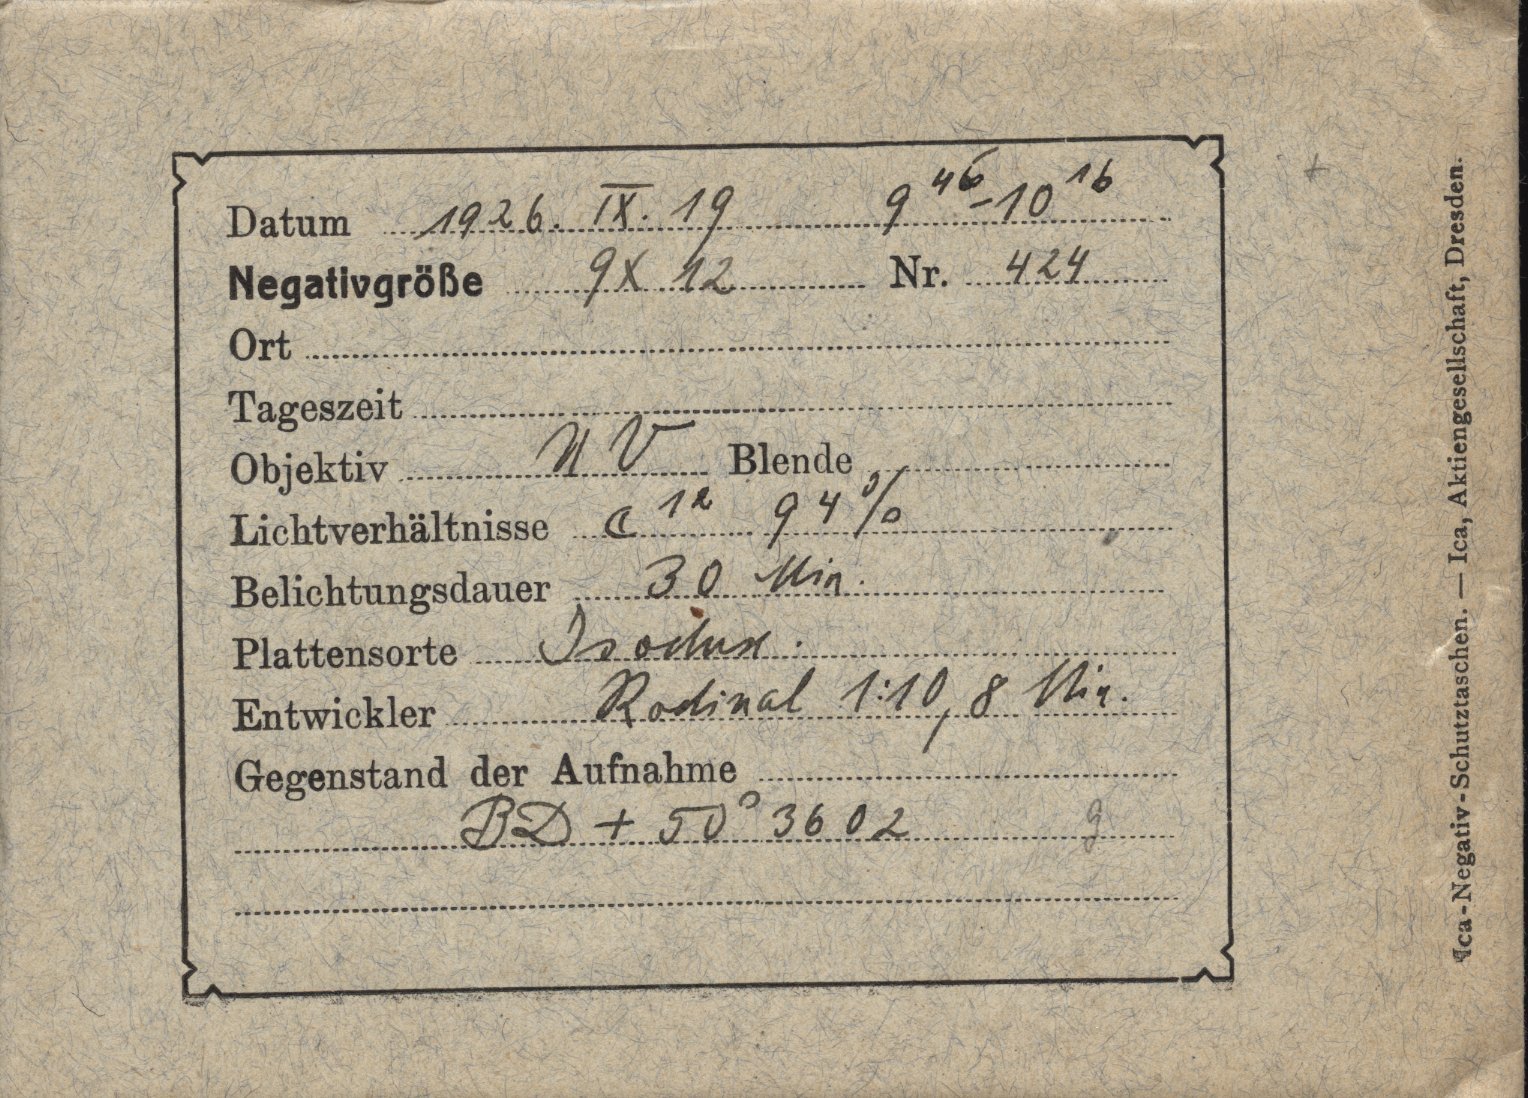 Datum 1926. IX. 19 9 46 - 10 16
Negativgröße 9 X 12 Nr. 424
Ort
Tageszeit
Objektiv UV Blende
Lichtverhältnisse 12 94%
Belichtungsdauer 30 Min.
Plattensorte Isodux.
Entwickler Rodinal 1:10, 8 Min.
Gegenstand der Aufnahme
BD + 50° 3602 g
Ica-Negativ-Schutztaschen. — Ica, Aktiengesellschaft, Dresden.